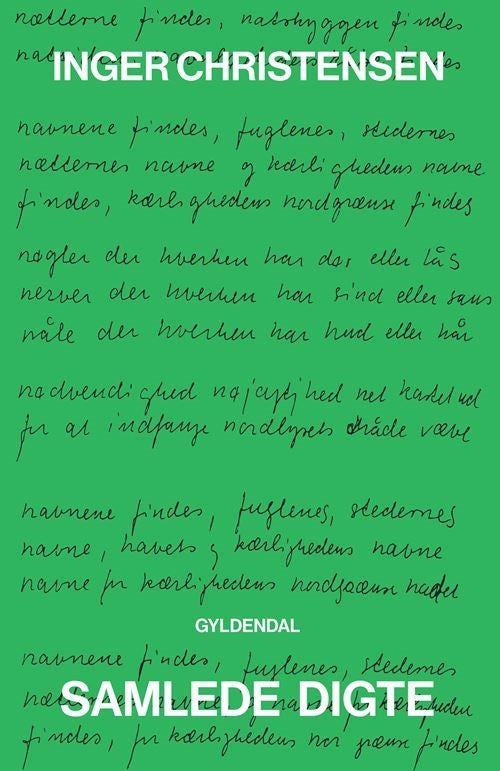 nætterne findes, natskyggen findes
INGER CHRISTENSEN
navnene findes, fuglenes, stedernes
nætternes navne og kærlighedens navne
findes, kærlighedens nordgrænse findes
nøgler der hverken har dør eller lås
nerver der hverken har sind eller sans
nåle der hverken har hud eller hår
nødvendighed nøjagtighed net kastet ud
for at indfange nordlysets tråde væve
navnene findes, fuglenes, stedernes
navne, havets og kærlighedens navne
navne for kærlighedens nordgrænse
GYLDENDAL
navnene findes, fuglenes, stedernes
SAMLEDE DIGTE
findes, for kærlighedens nordgrænse findes